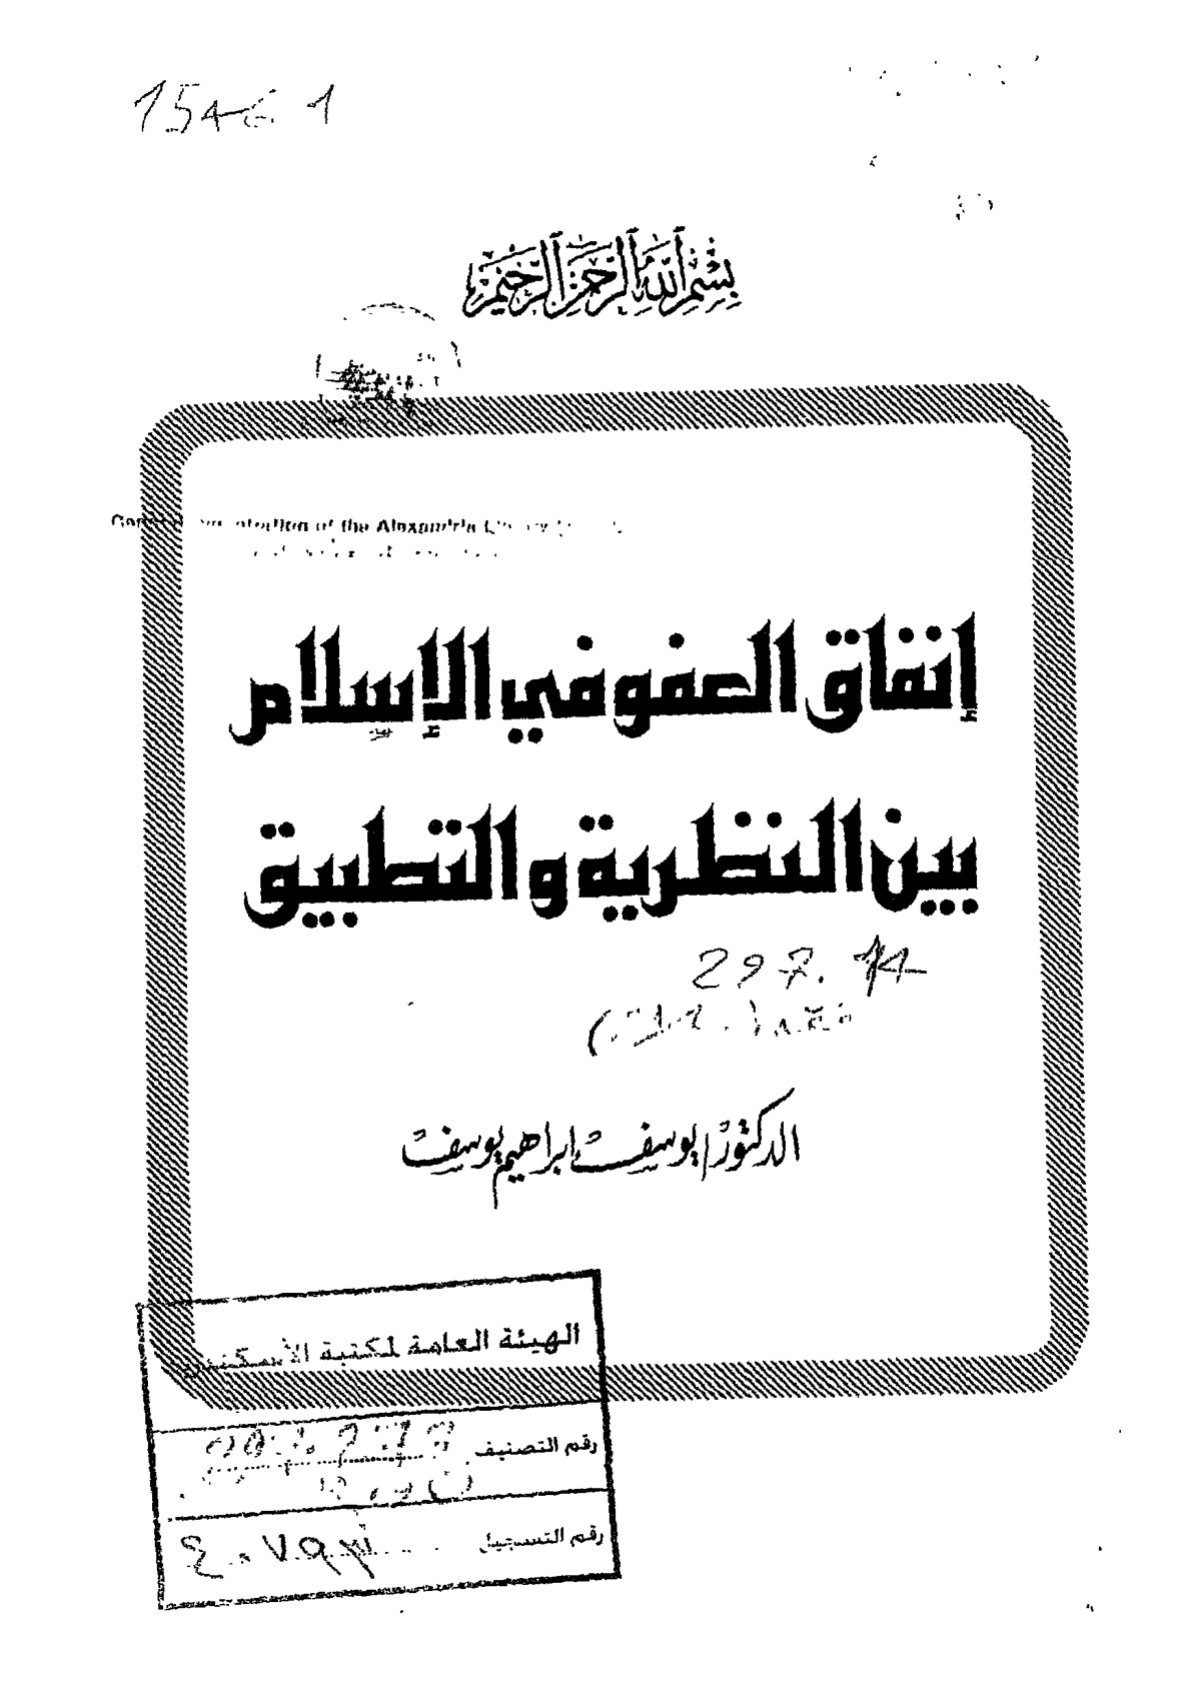 بسم الله الرحمن الرحيم
of the Alexandria
إنفاق العفو في الإسلام
بين النظرية والتطبيق
297.14
الدكتور يوسف إبراهيم يوسف
الهيئة العامة لمكتبة الأسكندرية
رقم التصنيف
رقم التسجيل